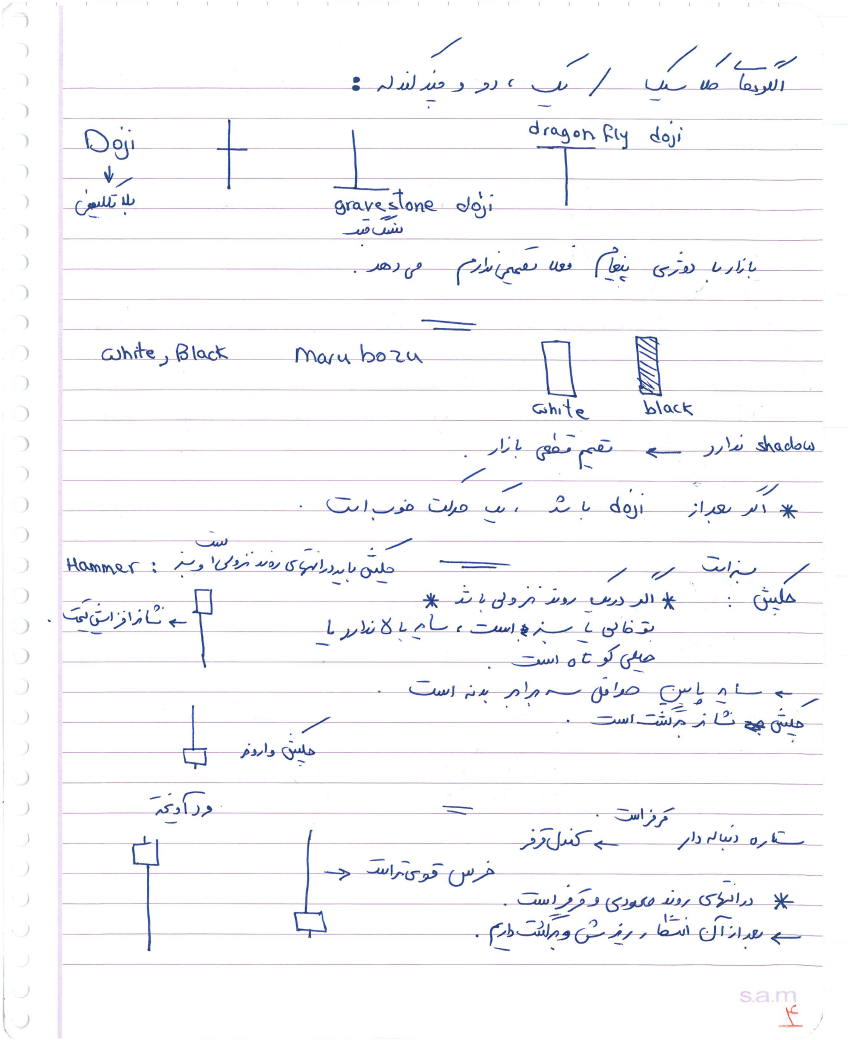 الگوهای کلاسیک / یک ، دو و چند کندله :
Doji
dragon fly doji
بلاتکلیفی
gravestone doji
سنگ قبر
بازار با دوژی پیغام فعلا تصمیمی ندارم می دهد .
White, Black Marubozu
white black
shadow ندارد ← تصمیم قطعی بازار .
* اگر بعد از doji باشد ، یک حرکت خوب است .
Hammer : چکش باید در انتهای روند نزولی و سبز
سبز است
چکش : * اگر در یک روند نزولی باشد *
توخالی یا سبز است ، سایه بالا ندارد یا
خیلی کوتاه است .
← نشانه افزایش قیمت .
← سایه پایین حداقل سه برابر بدنه است .
چکش نشانه برگشت است .
چکش وارونه
ستاره دنباله دار ← کندل قرمز
قرمز است .
دار آویخته
→ خرس قوی تر است
* در انتهای روند صعودی و قرمز است .
← بعد از آن انتظار ریزش و برگشت داریم .
s.a.m
۴